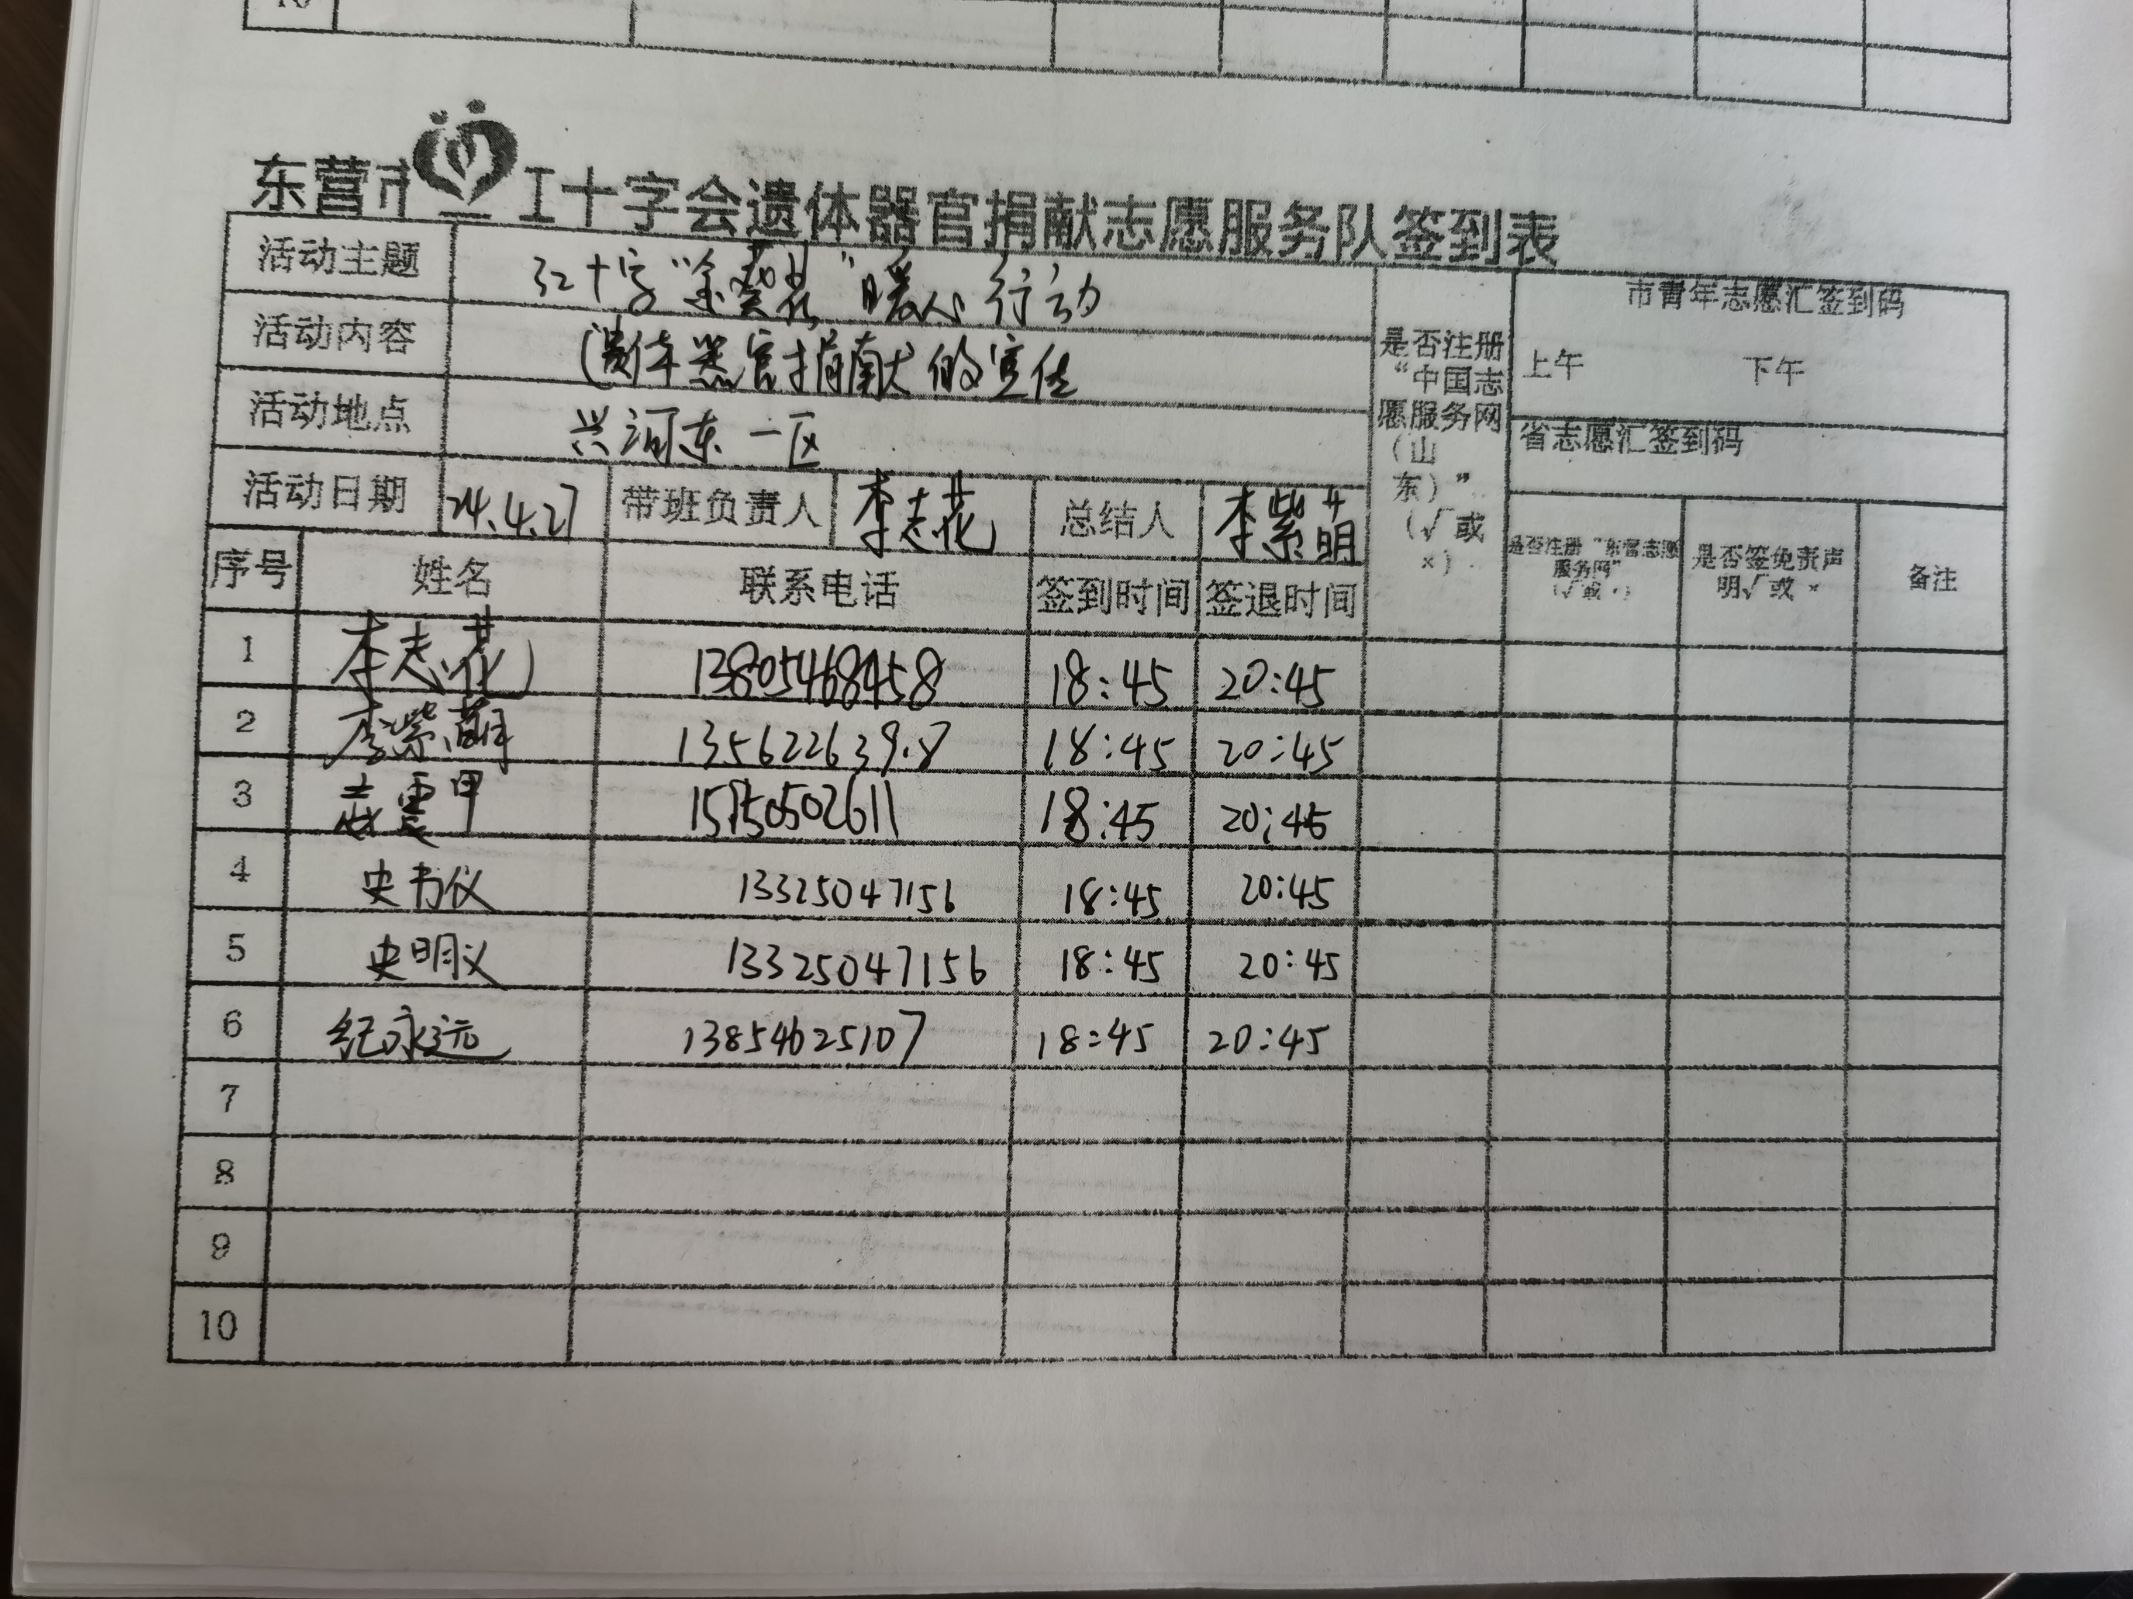 东营市 红十字会遗体器官捐献志愿服务队签到表
活动主题 红十字“金葵花”暖心行动
活动内容 遗体器官捐献的宣传
活动地点 兴河东一区
是否注册“中国志愿服务网（山东）”（√或×）
市青年志愿汇签到码
上午 下午
省志愿汇签到码
活动日期 24.4.27 带班负责人 李志花 总结人 李紫萌
是否注册“东营志愿服务网”（√或×） 是否签免责声明√或× 备注
序号 姓名 联系电话 签到时间 签退时间
1 李志花 13805468458 18:45 20:45
2 李紫萌 18:45 20:45
3 18:45 20:45
4 史书仪 13325047156 18:45 20:45
5 史明义 13325047156 18:45 20:45
6 纪永远 13854625107 18:45 20:45
7
8
9
10